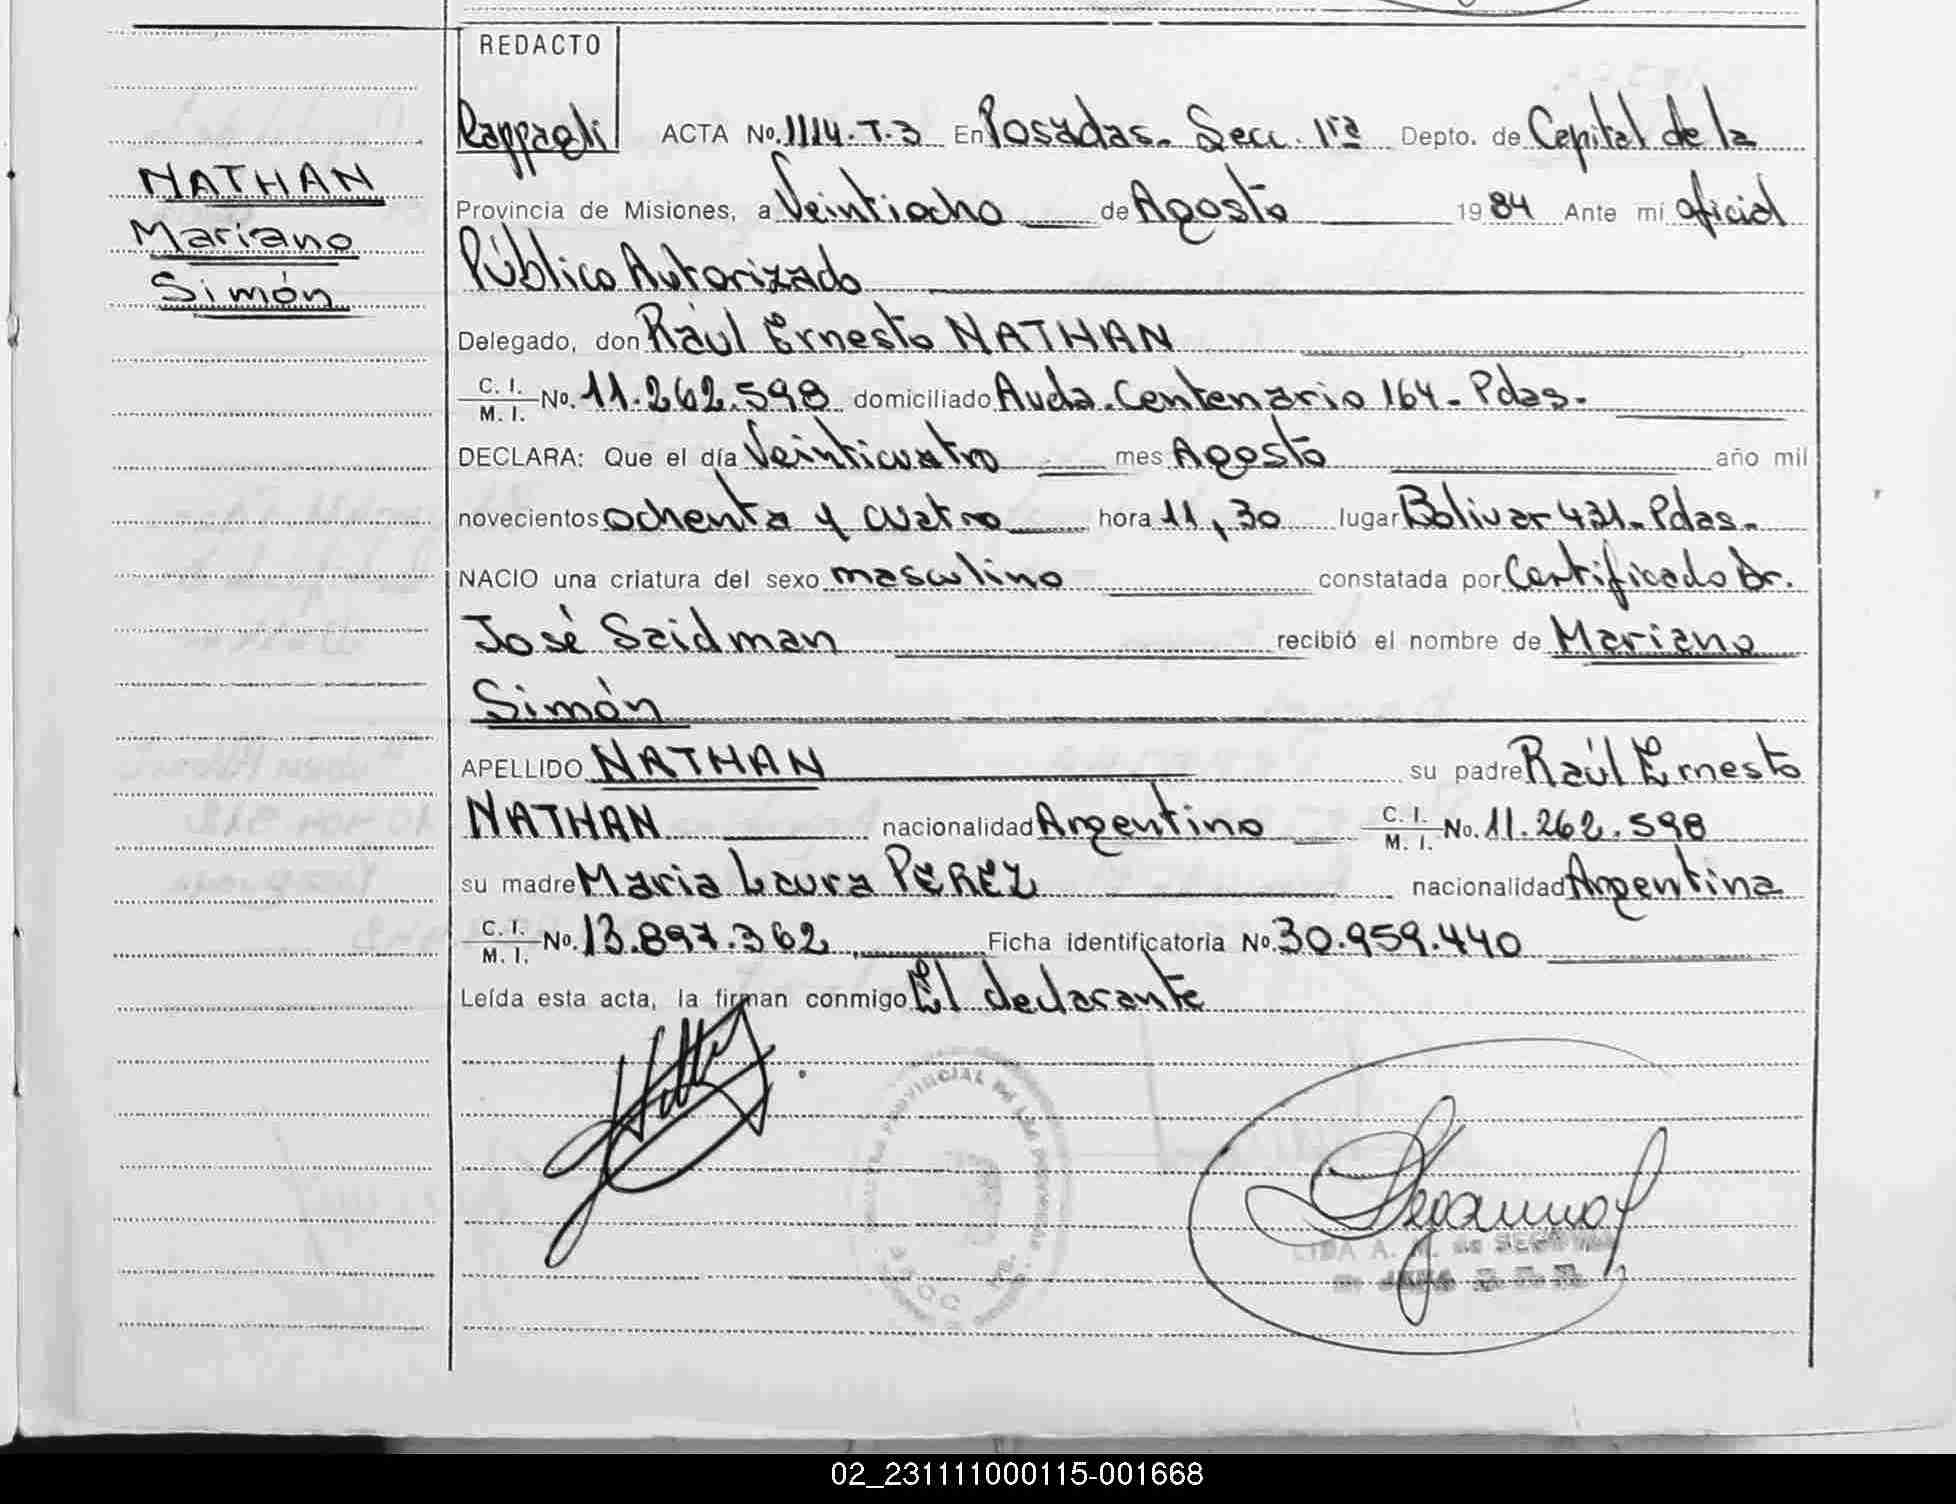 REDACTO
Rappagli ACTA No. 1114-T-3 En Posadas- Secc. 1ra Depto. de Capital de la
NATHAN
Mariano
Simón
Provincia de Misiones, a Veintiocho de Agosto 1984 Ante mi oficial
Público Autorizado
Delegado, don Raúl Ernesto NATHAN
C. I. / M. I. No. 11.262.598 domiciliado Avda. Centenario 164- Pdas-
DECLARA: Que el día Veinticuatro mes Agosto año mil
novecientos ochenta y cuatro hora 11,30 lugar Bolivar 431- Pdas-
NACIO una criatura del sexo masculino constatada por Certificado Dr.
José Saidman recibió el nombre de Mariano
Simón
APELLIDO NATHAN su padre Raúl Ernesto
NATHAN nacionalidad Argentino C. I. / M. I. No. 11.262.598
su madre Maria Laura PEREZ nacionalidad Argentina
C. I. / M. I. No. 13.897.362 Ficha identificatoria No. 30.959.440
Leída esta acta, la firman conmigo El declarante
PROVINCIAL DE LAS PERSONAS
LIDA A. M. de
02_231111000115-001668